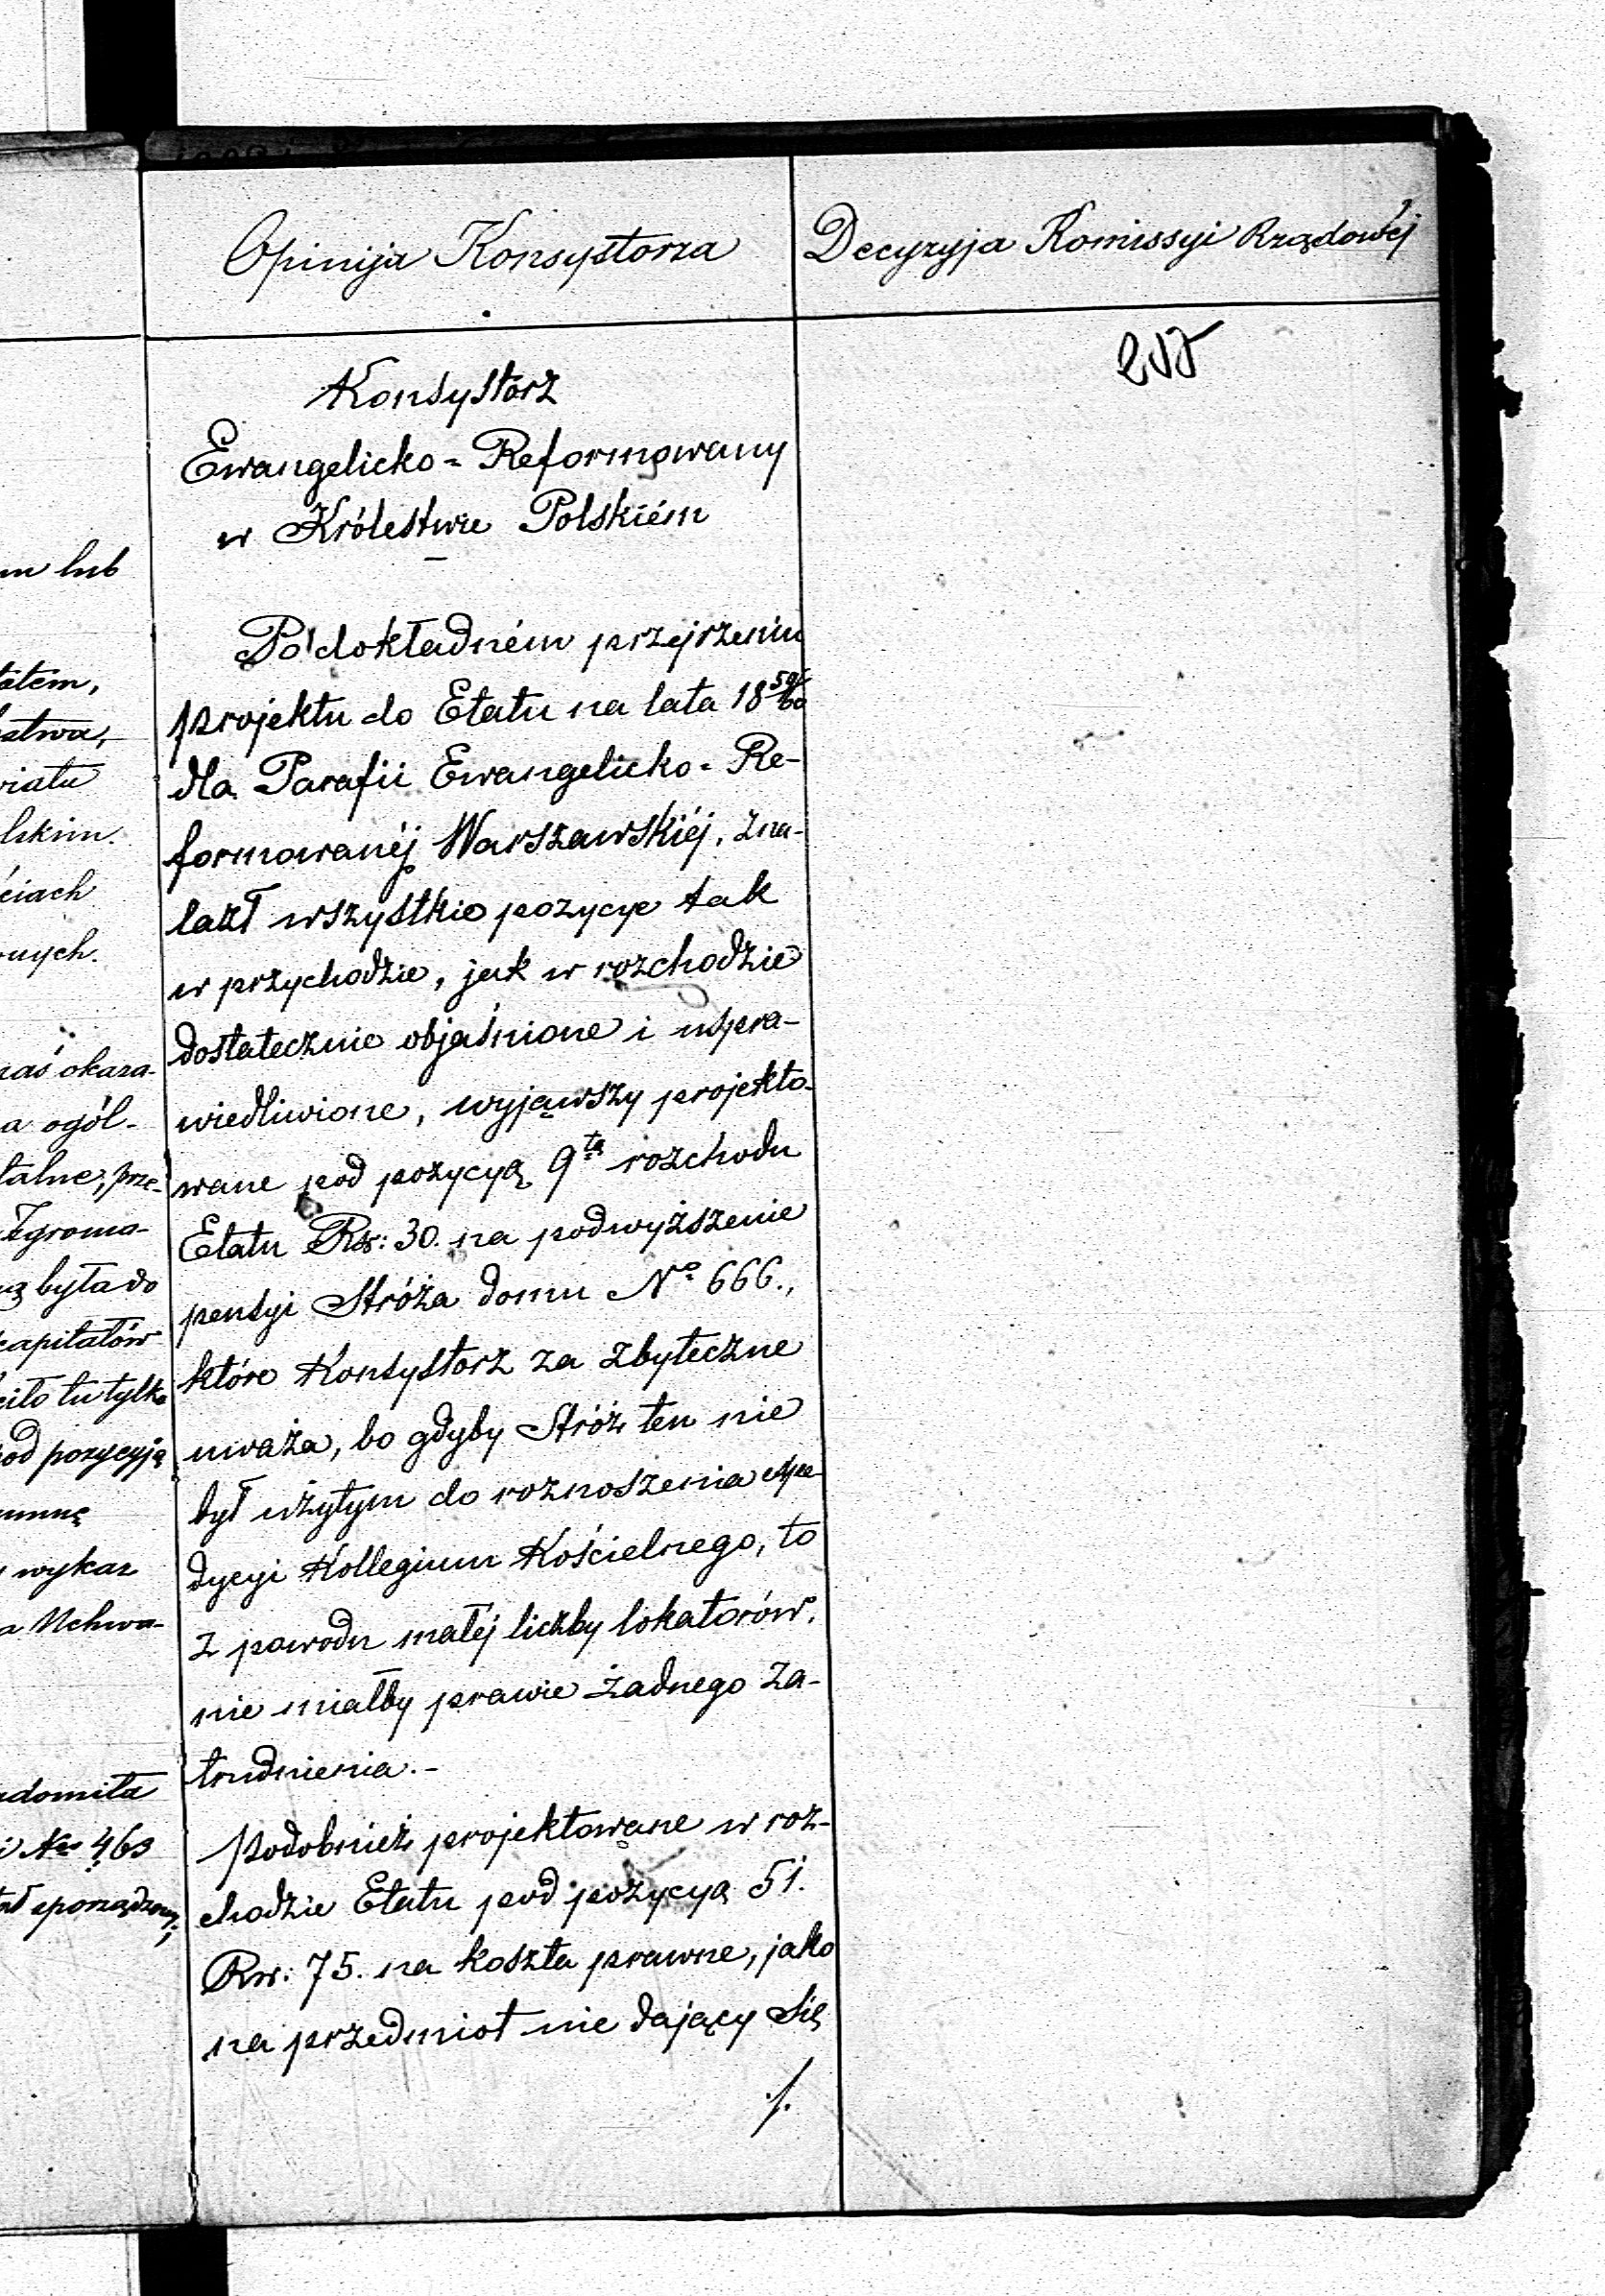 Opinija Konsystorza
Decyzyja Komissyi Rządowéj
Konsystorz
Ewangelicko-Reformowany
w Królestwie Polskiém
Po dokładném przejrzeniu
projektu do Etatu na lata 18 58/60
dla Parafii Ewangelicko-Re-
formowanéj Warszawskiéj, zna-
lazł wszystkie pozycye tak
w przychodzie, jak w rozchodzie
dostatecznie objaśnione i uspra-
wiedliwione, wyjąwszy projekto-
wane pod pozycyą 9tą rozchodu
Etatu Rsr: 30. na podwyższenie
pensyi Stróża domu No 666.,
które Konsystorz za zbyteczne
uważa, bo gdyby Stróż ten nie
był użytym do roznoszenia expe-
dycyi Kollegium Kościelnego, to
z powodu małéj liczby lokatorów,
nie miałby prawie żadnego za-
trudnienia.-
Podobnież projektowane w roz-
chodzie Etatu pod pozycyą 51.
Rsr: 75. na koszta prawne, jako
na przedmiot nie dający się
./.
m lub
tatem,
stwa,
wiatu
lskim.
ciach
nych.
naś okaza-
a ogól-
talne, prze-
Zgroma-
była do
kapitałów
ciło tu tylko
pod pozycyją
umnę
wykaz
a Uchwa-
adomiła
i No 463
sporządzony